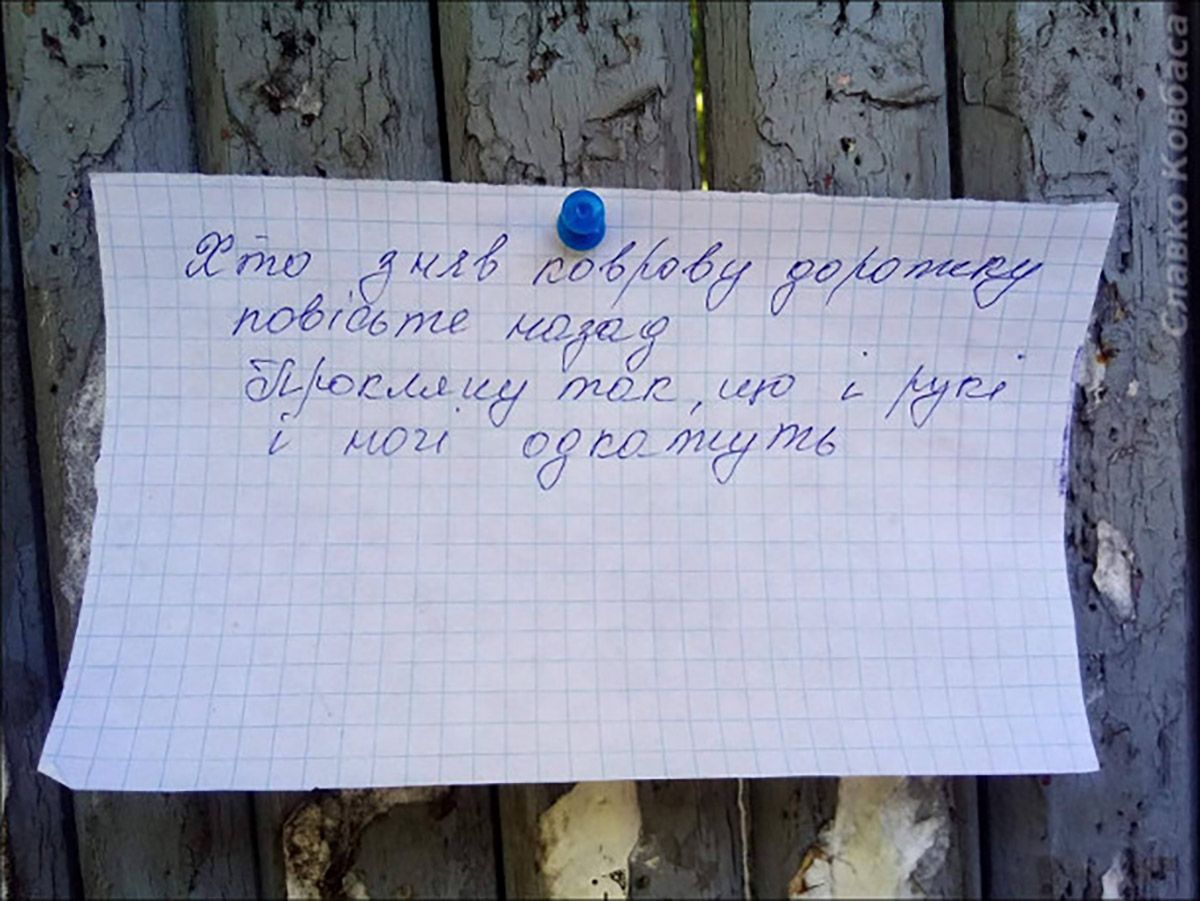 Хто зняв коврову дорожку
повісьте назад
Прокляну так, що і рукі
і ногі одкажуть
Славко Ковбаса